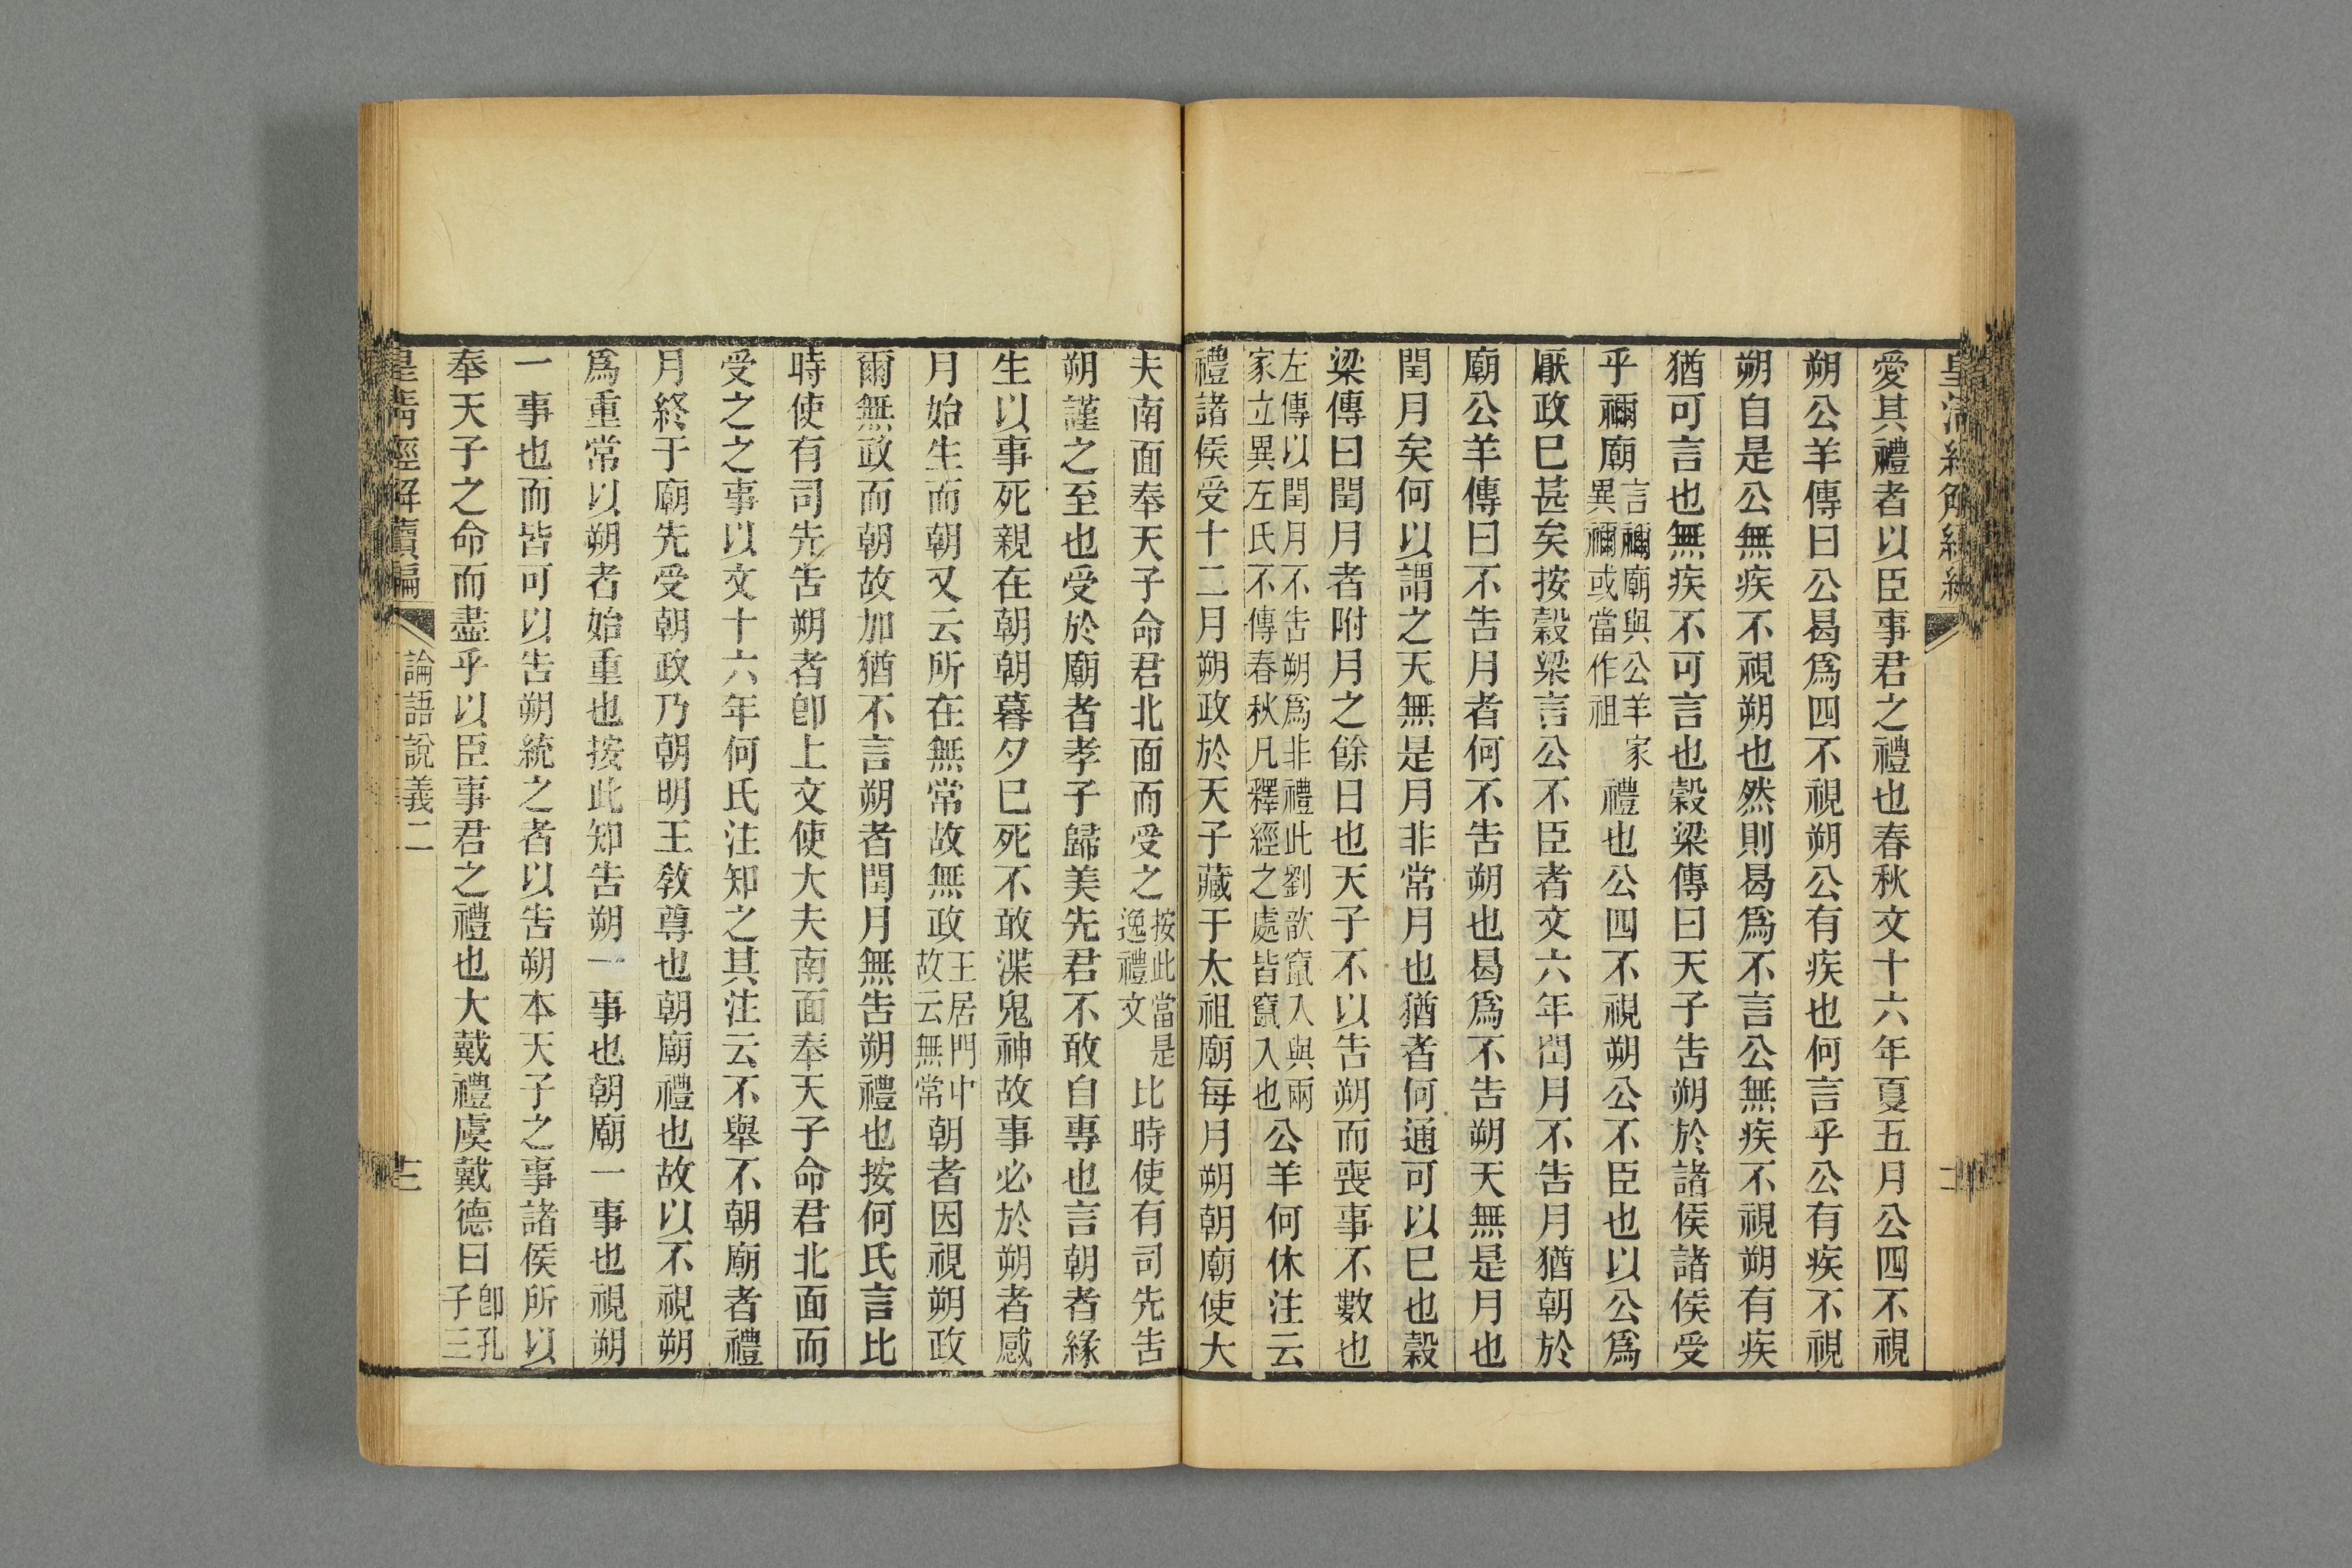 愛其禮者以臣事君之禮也春秋文十六年夏五月公四不視
朔公羊傳曰公曷爲四不視朔公有疾也何言乎公有疾不視
朔自是公無疾不視朔也然則曷爲不言公無疾不視朔有疾
猶可言也無疾不可言也穀梁傳曰天子告朔於諸侯諸侯受
乎禰廟言禰廟與公羊家異禰或當作祖禮也公四不視朔公不臣也以公爲
厭政巳甚矣按穀梁言公不臣者文六年閏月不告月猶朝於
廟公羊傳曰不告月者何不告朔也曷爲不告朔天無是月也
閏月矣何以謂之天無是月非常月也猶者何通可以巳也穀
梁傳曰閏月者附月之餘日也天子不以告朔而喪事不數也
左傳以閏月不告朔爲非禮此劉歆竄入與兩家立異左氏不傳春秋凡釋經之處皆竄入也公羊何休注云
禮諸侯受十二月朔政於天子藏于太祖廟每月朔朝廟使大
夫南面奉天子命君北面而受之按此當是逸禮文比時使有司先告
朔謹之至也受於廟者孝子歸美先君不敢自專也言朝者緣
生以事死親在朝朝暮夕巳死不敢渫鬼神故事必於朔者感
月始生而朝又云所在無常故無政王居門中故云無常朝者因視朔政
爾無政而朝故加猶不言朔者閏月無告朔禮也按何氏言比
時使有司先告朔者卽上文使大夫南面奉天子命君北面而
受之之事以文十六年何氏注知之其注云不舉不朝廟者禮
月終于廟先受朝政乃朝明王敎尊也朝廟禮也故以不視朔
爲重常以朔者始重也按此知告朔一事也朝廟一事也視朔
一事也而皆可以告朔統之者以告朔本天子之事諸侯所以
奉天子之命而盡乎以臣事君之禮也大戴禮虞戴德曰卽孔子三
皇清經解續編
論語說義二